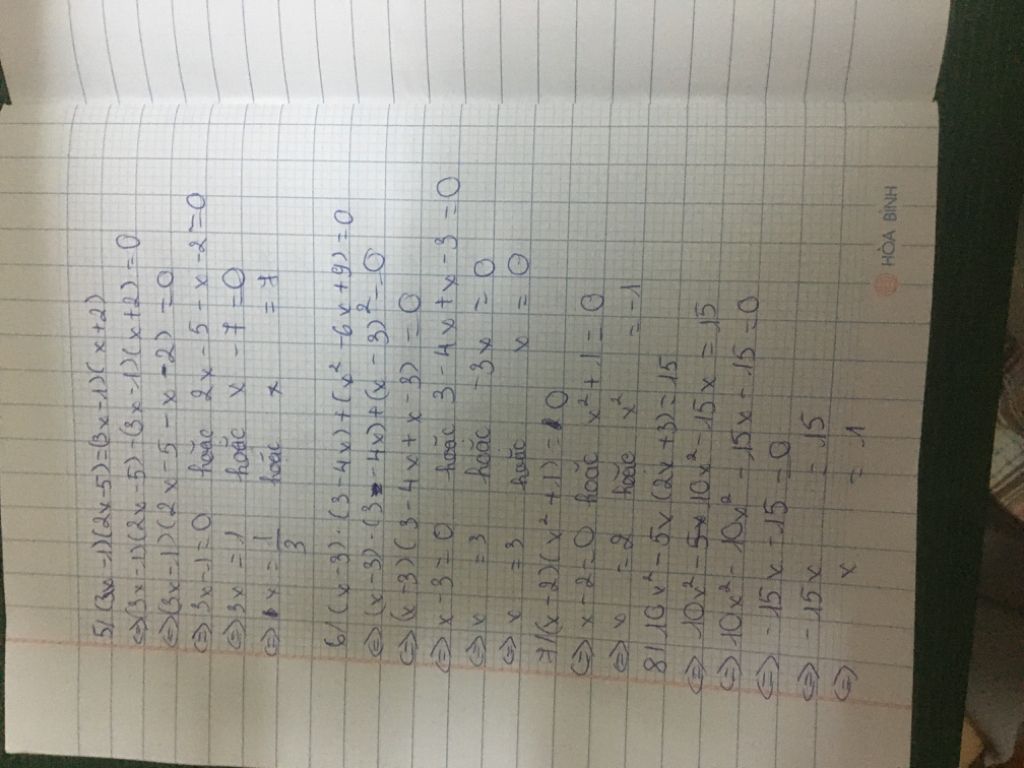 5/ (3x-1)(2x-5)=(3x-1)(x+2)
⇔ (3x-1)(2x-5)-(3x-1)(x+2)=0
⇔ (3x-1)(2x-5-x-2)=0
⇔ 3x-1=0 hoặc 2x-5-x-2=0
⇔ 3x=1 hoặc x-7=0
⇔ x=1/3 hoặc x=7
6/ (x-3).(3-4x)+(x²-6x+9)=0
⇔ (x-3).(3-4x)+(x-3)²=0
⇔ (x-3)(3-4x+x-3)=0
⇔ x-3=0 hoặc 3-4x+x-3=0
⇔ x=3 hoặc -3x=0
⇔ x=3 hoặc x=0
7/ (x-2)(x²+1)=0
⇔ x-2=0 hoặc x²+1=0
⇔ x=2 hoặc x²=-1
8/ 10x²-5x(2x+3)=15
⇔ 10x²-10x²-15x=15
⇔ 10x²-10x²-15x-15=0
⇔ -15x-15=0
⇔ -15x=15
⇔ x=1
HÒA BÌNH